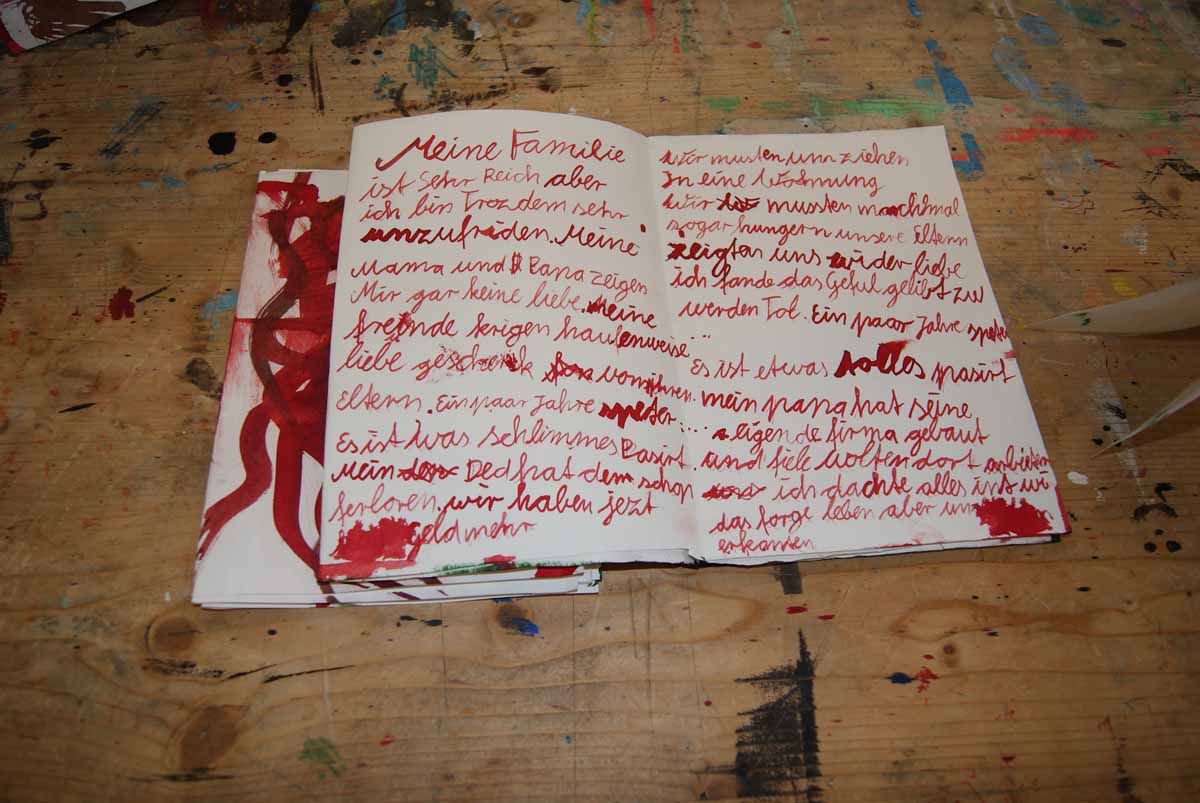 Meine Familie
ist Sehr Reich aber
ich bin Trozdem sehr
unzufriden. Meine
Mama und Papa zeigen
Mir gar keine liebe. Meine
freunde krigen haufenweise
liebe geschenk von ihren
Eltern. Ein paar Jahre speter...
Es ist twas schlimmes Pasirt.
Mein Ded hat dem schop
ferloren. wir haben jezt
geld mehr
Wir musten um ziehen
In eine Wohnung
Wir musten manchmal
sogar hungern unsere Eltern
zeigten uns wider liebe
ich fande das Geful gelibt zu
werden Tol. Ein paar Jahre speter
...
Es ist etwas tolles pasirt
mein papa hat seine
eigende firma gebaut
und fiele wolten dort arbieten
ich dachte alles ist wi
das forge leben aber
erkanten